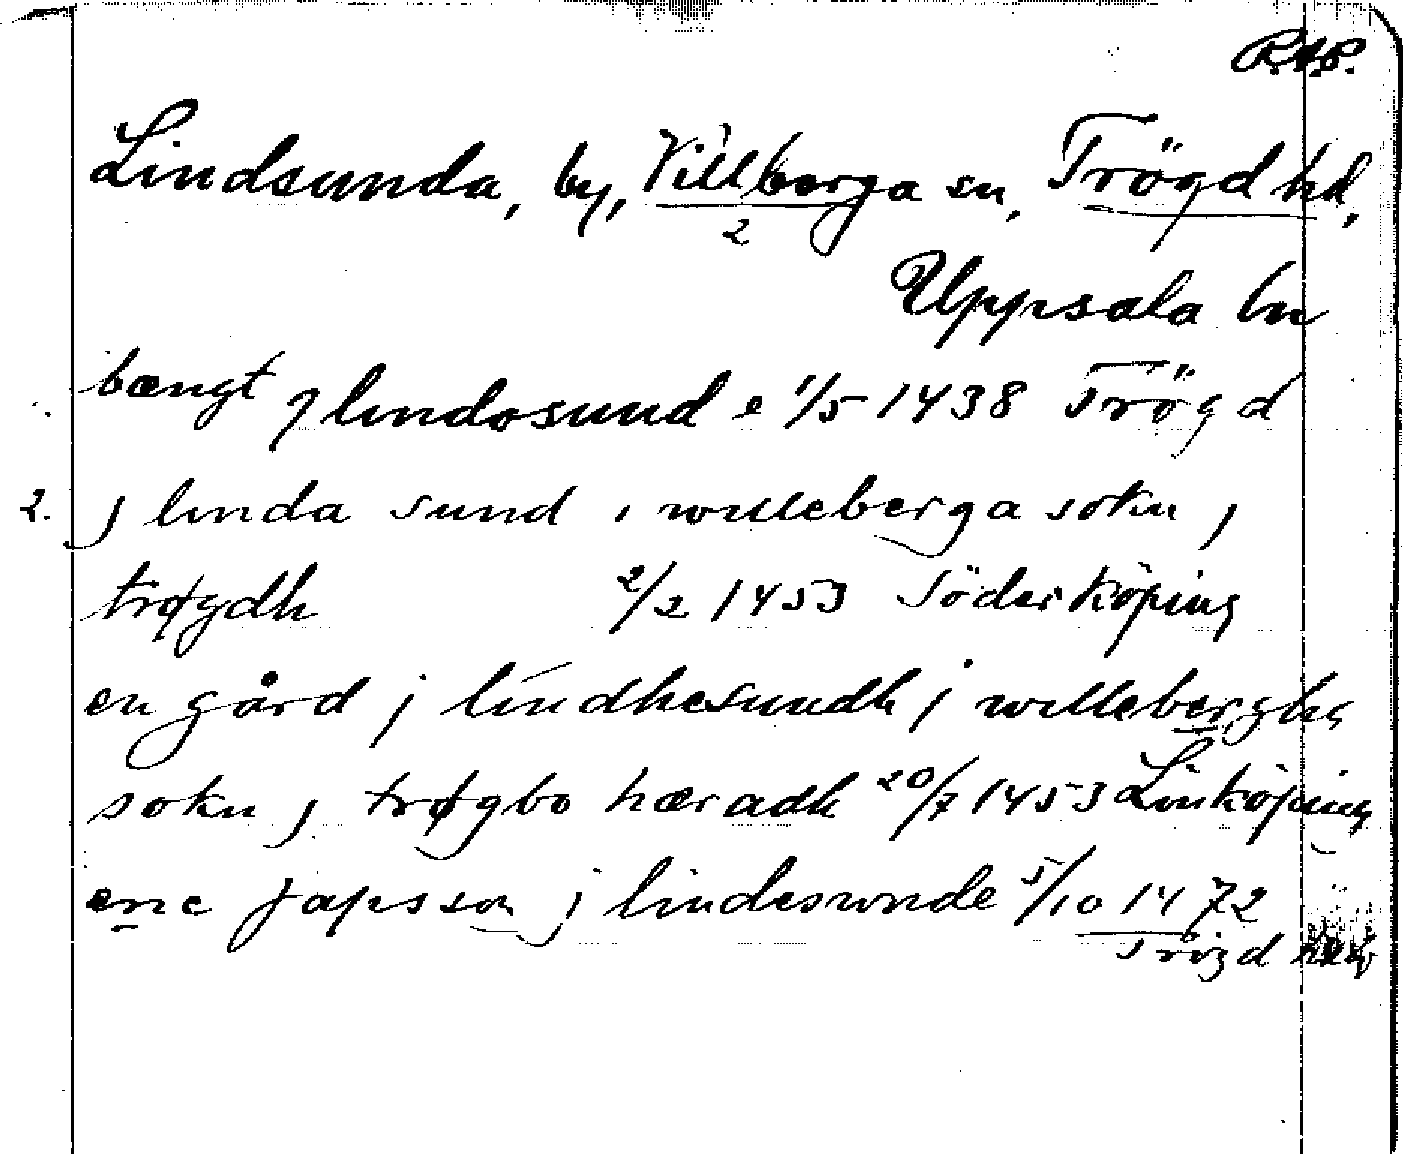 R.A.P.
Lindsunda, by, Villberga sn, Trögd hd,
2
Uppsala ln
bængt j lindosund e 1/5 1438 Trögd
2. j linda sund i willeberga sokn j
trøgdh 2/2 1453 Söderköping
en gård j lindhesundh j willebergha
sokn j trøgbo hæradh 20/7 1453 Linköping
eric japsson j lindesunde 5/10 1472
Trögd